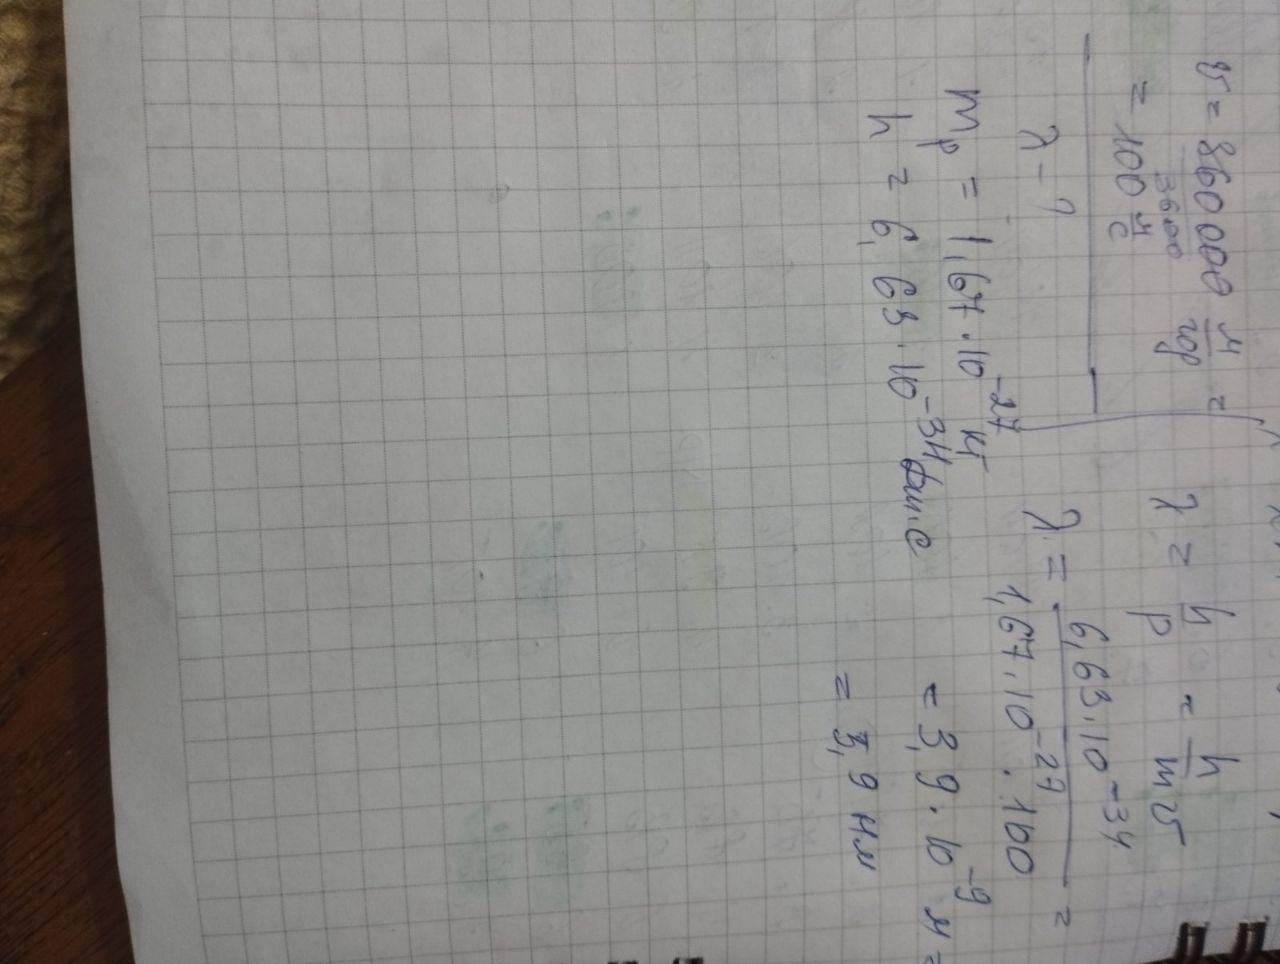 v = 860 000 м/год =
3600
= 100 м/с
λ - ?
m_p = 1,67 · 10^-27 кг
h = 6,63 · 10^-34 Дж·с
λ = h/p = h/mv
λ = 6,63·10^-34 / 1,67·10^-27 · 100 =
= 3,9 · 10^-9 м =
= 3,9 нм